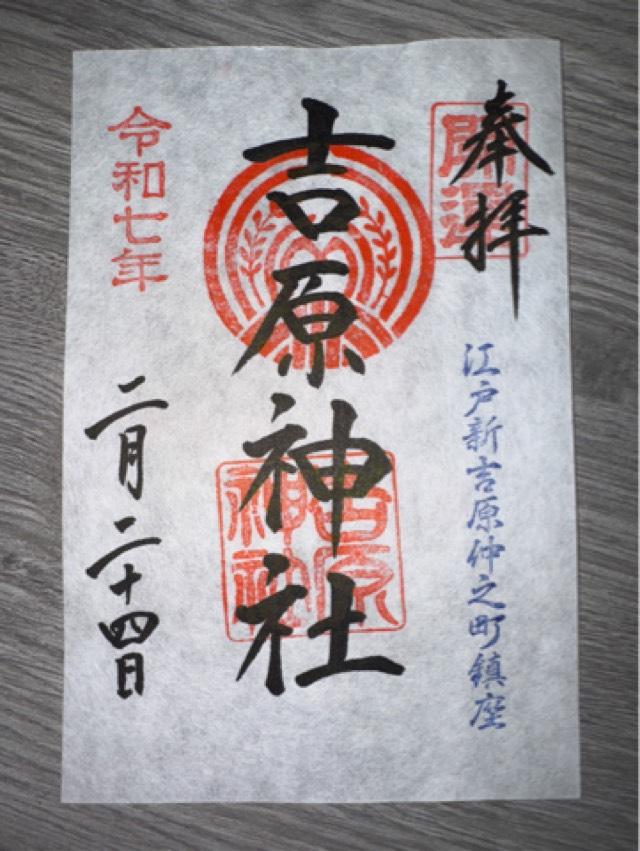 奉拝
開運
江戸新吉原仲之町鎮座
吉原神社
吉原
神社
令和七年
二月二十四日